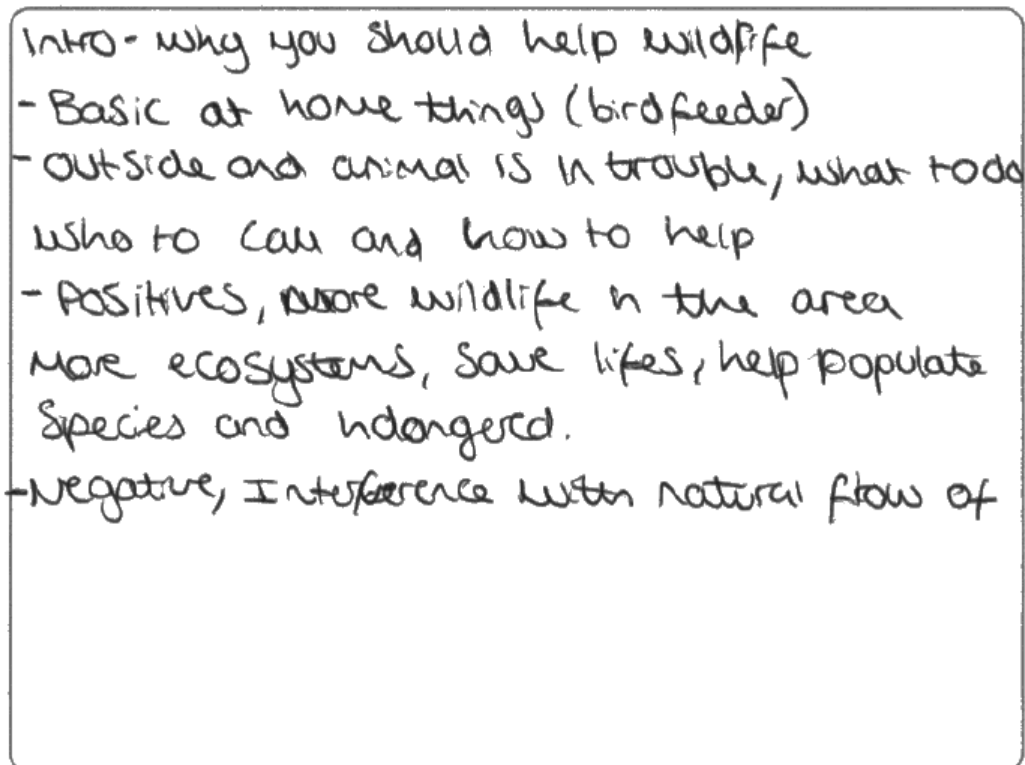 Intro - why you should help wildlife
- Basic at home things (birdfeeder)
- outside and animal is in trouble, what to do
who to call and how to help
- Positives, more wildlife in the area
More ecosystems, save lifes, help populate
species and indangered.
- Negative, Interference with natural flow of